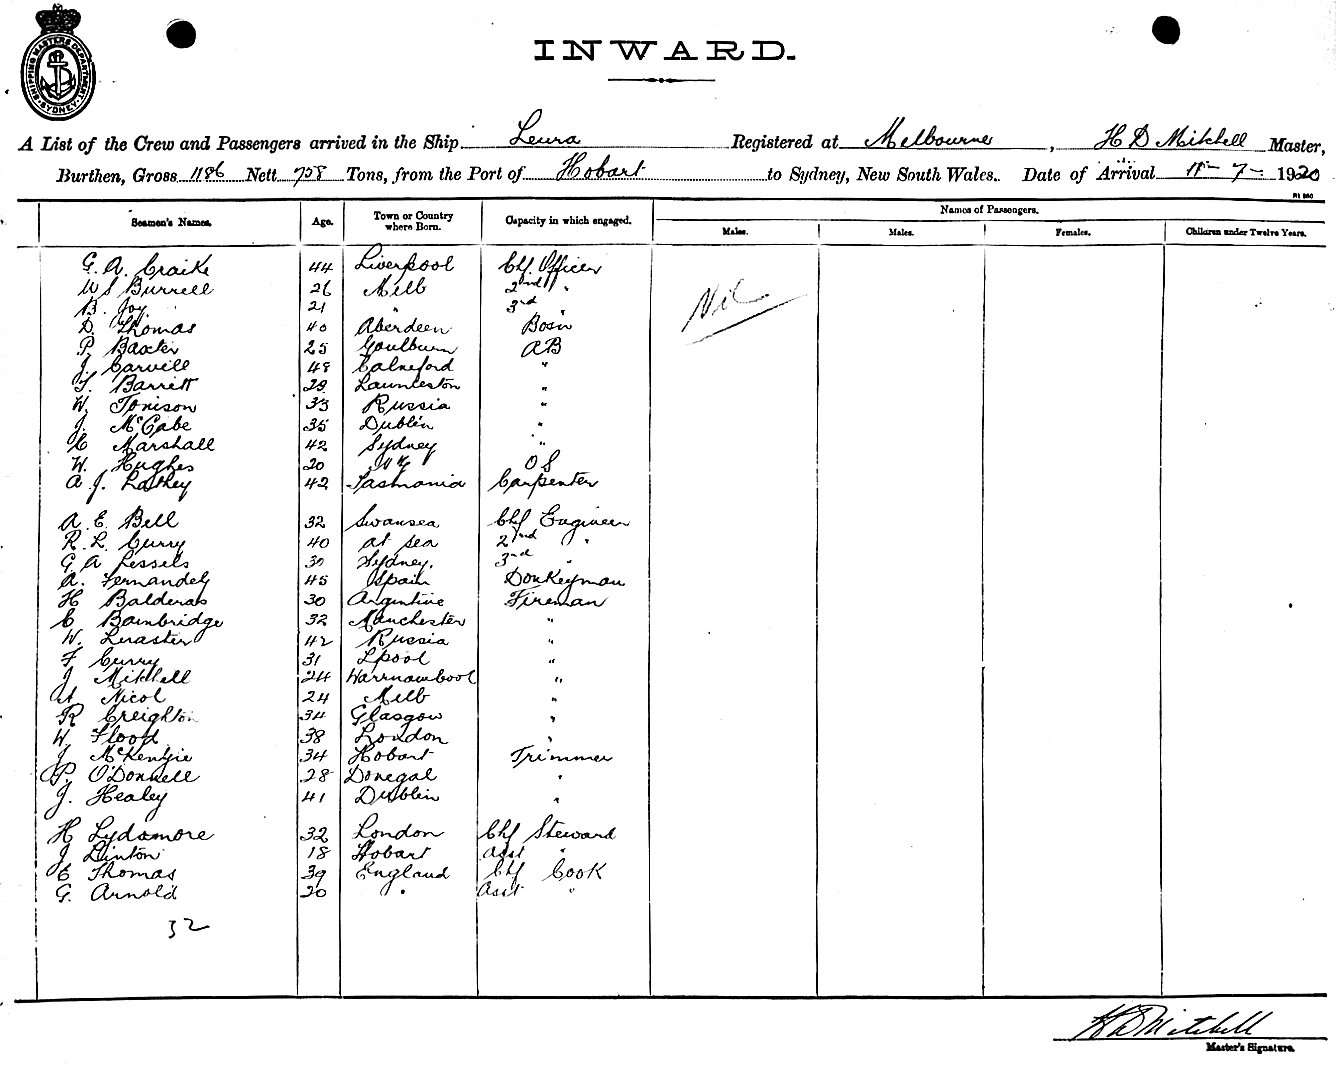 SHIPPING MASTERS DEPARTMENT SYDNEY
INWARD.
A List of the Crew and Passengers arrived in the Ship Leura Registered at Melbourne, H D Mitchell Master,
Burthen, Gross 1186 Nett 758 Tons, from the Port of Hobart to Sydney, New South Wales. Date of Arrival 11 - 7 - 1920
Seamen's Names. Age. Town or Country where Born. Capacity in which engaged. Names of Passengers.
Males. Males. Females. Children under Twelve Years.
G. A. Craike 44 Liverpool Chf Officer
W S Burrell 26 Melb 2nd "
Nil
B. Joy 21 " 3rd "
D. Thomas 40 Aberdeen Bosn
P. Baxter 25 Goulburn AB
J. Carvell 48 "
T. Barrett 29 Launceston "
W. Tonison 33 Russia "
J. McCabe 35 Dublin "
C Marshall 42 Sydney "
W. Hughes 20 OS
A. J. 42 Tasmania Carpenter
A. E. Bell 32 Swansea Chf Engineer
R. L. Curry 40 at sea 2nd "
G A Lessels 30 Sydney. 3rd "
A. Fernandez 45 Spain Donkeyman
H Balderas 30 Argentine Fireman
C Bambridge 32 Manchester "
W. 42 Russia "
F Curry 31 Lpool "
J Mitchell 24 Warrnambool "
A Nicol 24 Melb "
R Creighton 34 Glasgow "
W Flood 38 London "
J McKenzie 34 Hobart Trimmer
P. O'Donnell 28 Donegal "
J. Healey 41 Dublin "
H Lydamore 32 London Chf Steward
J Linton 18 Hobart asst "
E Thomas 39 England Chf Cook
G. Arnold 20 " Asst "
32
H D Mitchell
Master's Signature.